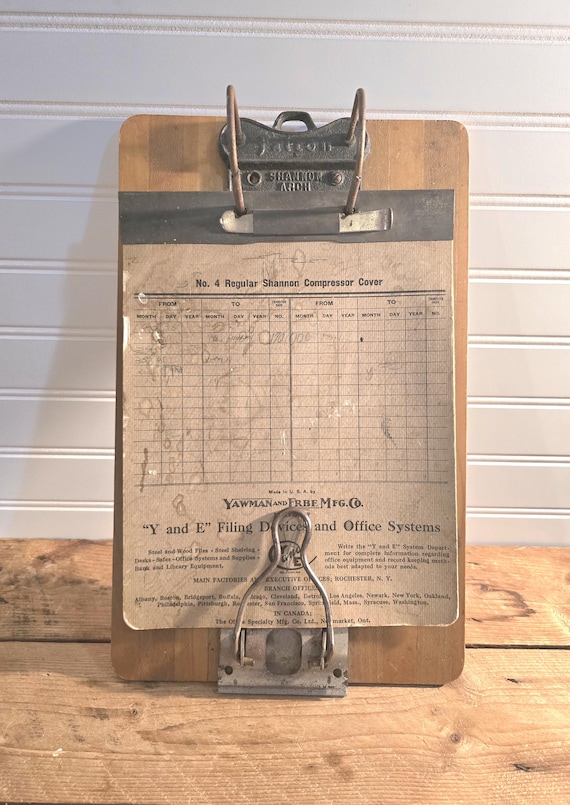 SHANNON
ARCH
No. 4 Regular Shannon Compressor Cover
FROM TO TRANSFER CASE FROM TO TRANSFER CASE
MONTH DAY YEAR MONTH DAY YEAR NO. MONTH DAY YEAR MONTH DAY YEAR NO.
Made in U. S. A. by
YAWMAN AND ERBE MFG. CO.
"Y and E" Filing Devices and Office Systems
Steel and Wood Files - Steel Shelving -
Desks - Safes - Office Systems and Supplies -
Bank and Library Equipment.
Write the "Y and E" System Depart-
ment for complete information regarding
office equipment and record keeping meth-
ods best adapted to your needs.
MAIN FACTORIES EXECUTIVE OFFICES; ROCHESTER, N. Y.
BRANCH OFFICES
Albany, Boston, Bridgeport, Buffalo, Chicago, Cleveland, Detroit, Los Angeles, Newark, New York, Oakland,
Philadelphia, Pittsburgh, Rochester, San Francisco, Springfield, Mass., Syracuse, Washington.
IN CANADA;
The Office Specialty Mfg. Co. Ltd., Newmarket, Ont.